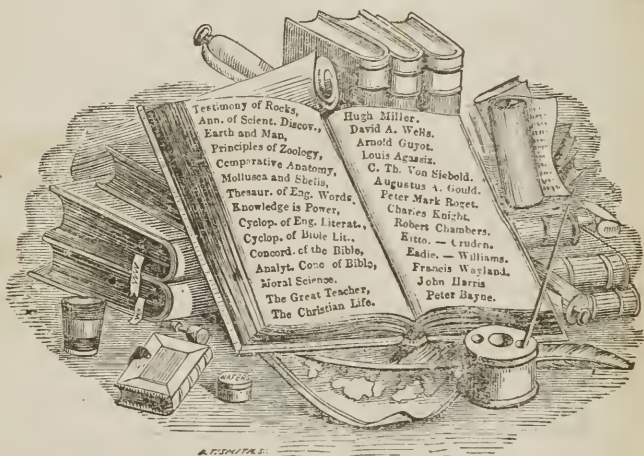 Testimony of Rocks,
Ann. of Scient. Discov.,
Earth and Man,
Principles of Zoology,
Comparative Anatomy,
Mollusca and Shells,
Thesaur. of Eng. Words.
Knowledge is Power,
Cyclop. of Eng. Literat.,
Cyclop. of Bible Lit.,
Concord. of the Bible,
Analyt. Conc of Bible,
Moral Science.
The Great Teacher,
The Christian Life.
Hugh Miller.
David A. Wells.
Arnold Guyot.
Louis Agassiz.
C. Th. Von Siebold.
Augustus A. Gould.
Peter Mark Roget.
Charles Knight.
Robert Chambers.
Kitto. — Cruden.
Eadie. — Williams.
Francis Wayland.
John Harris
Peter Bayne.
WAFERS